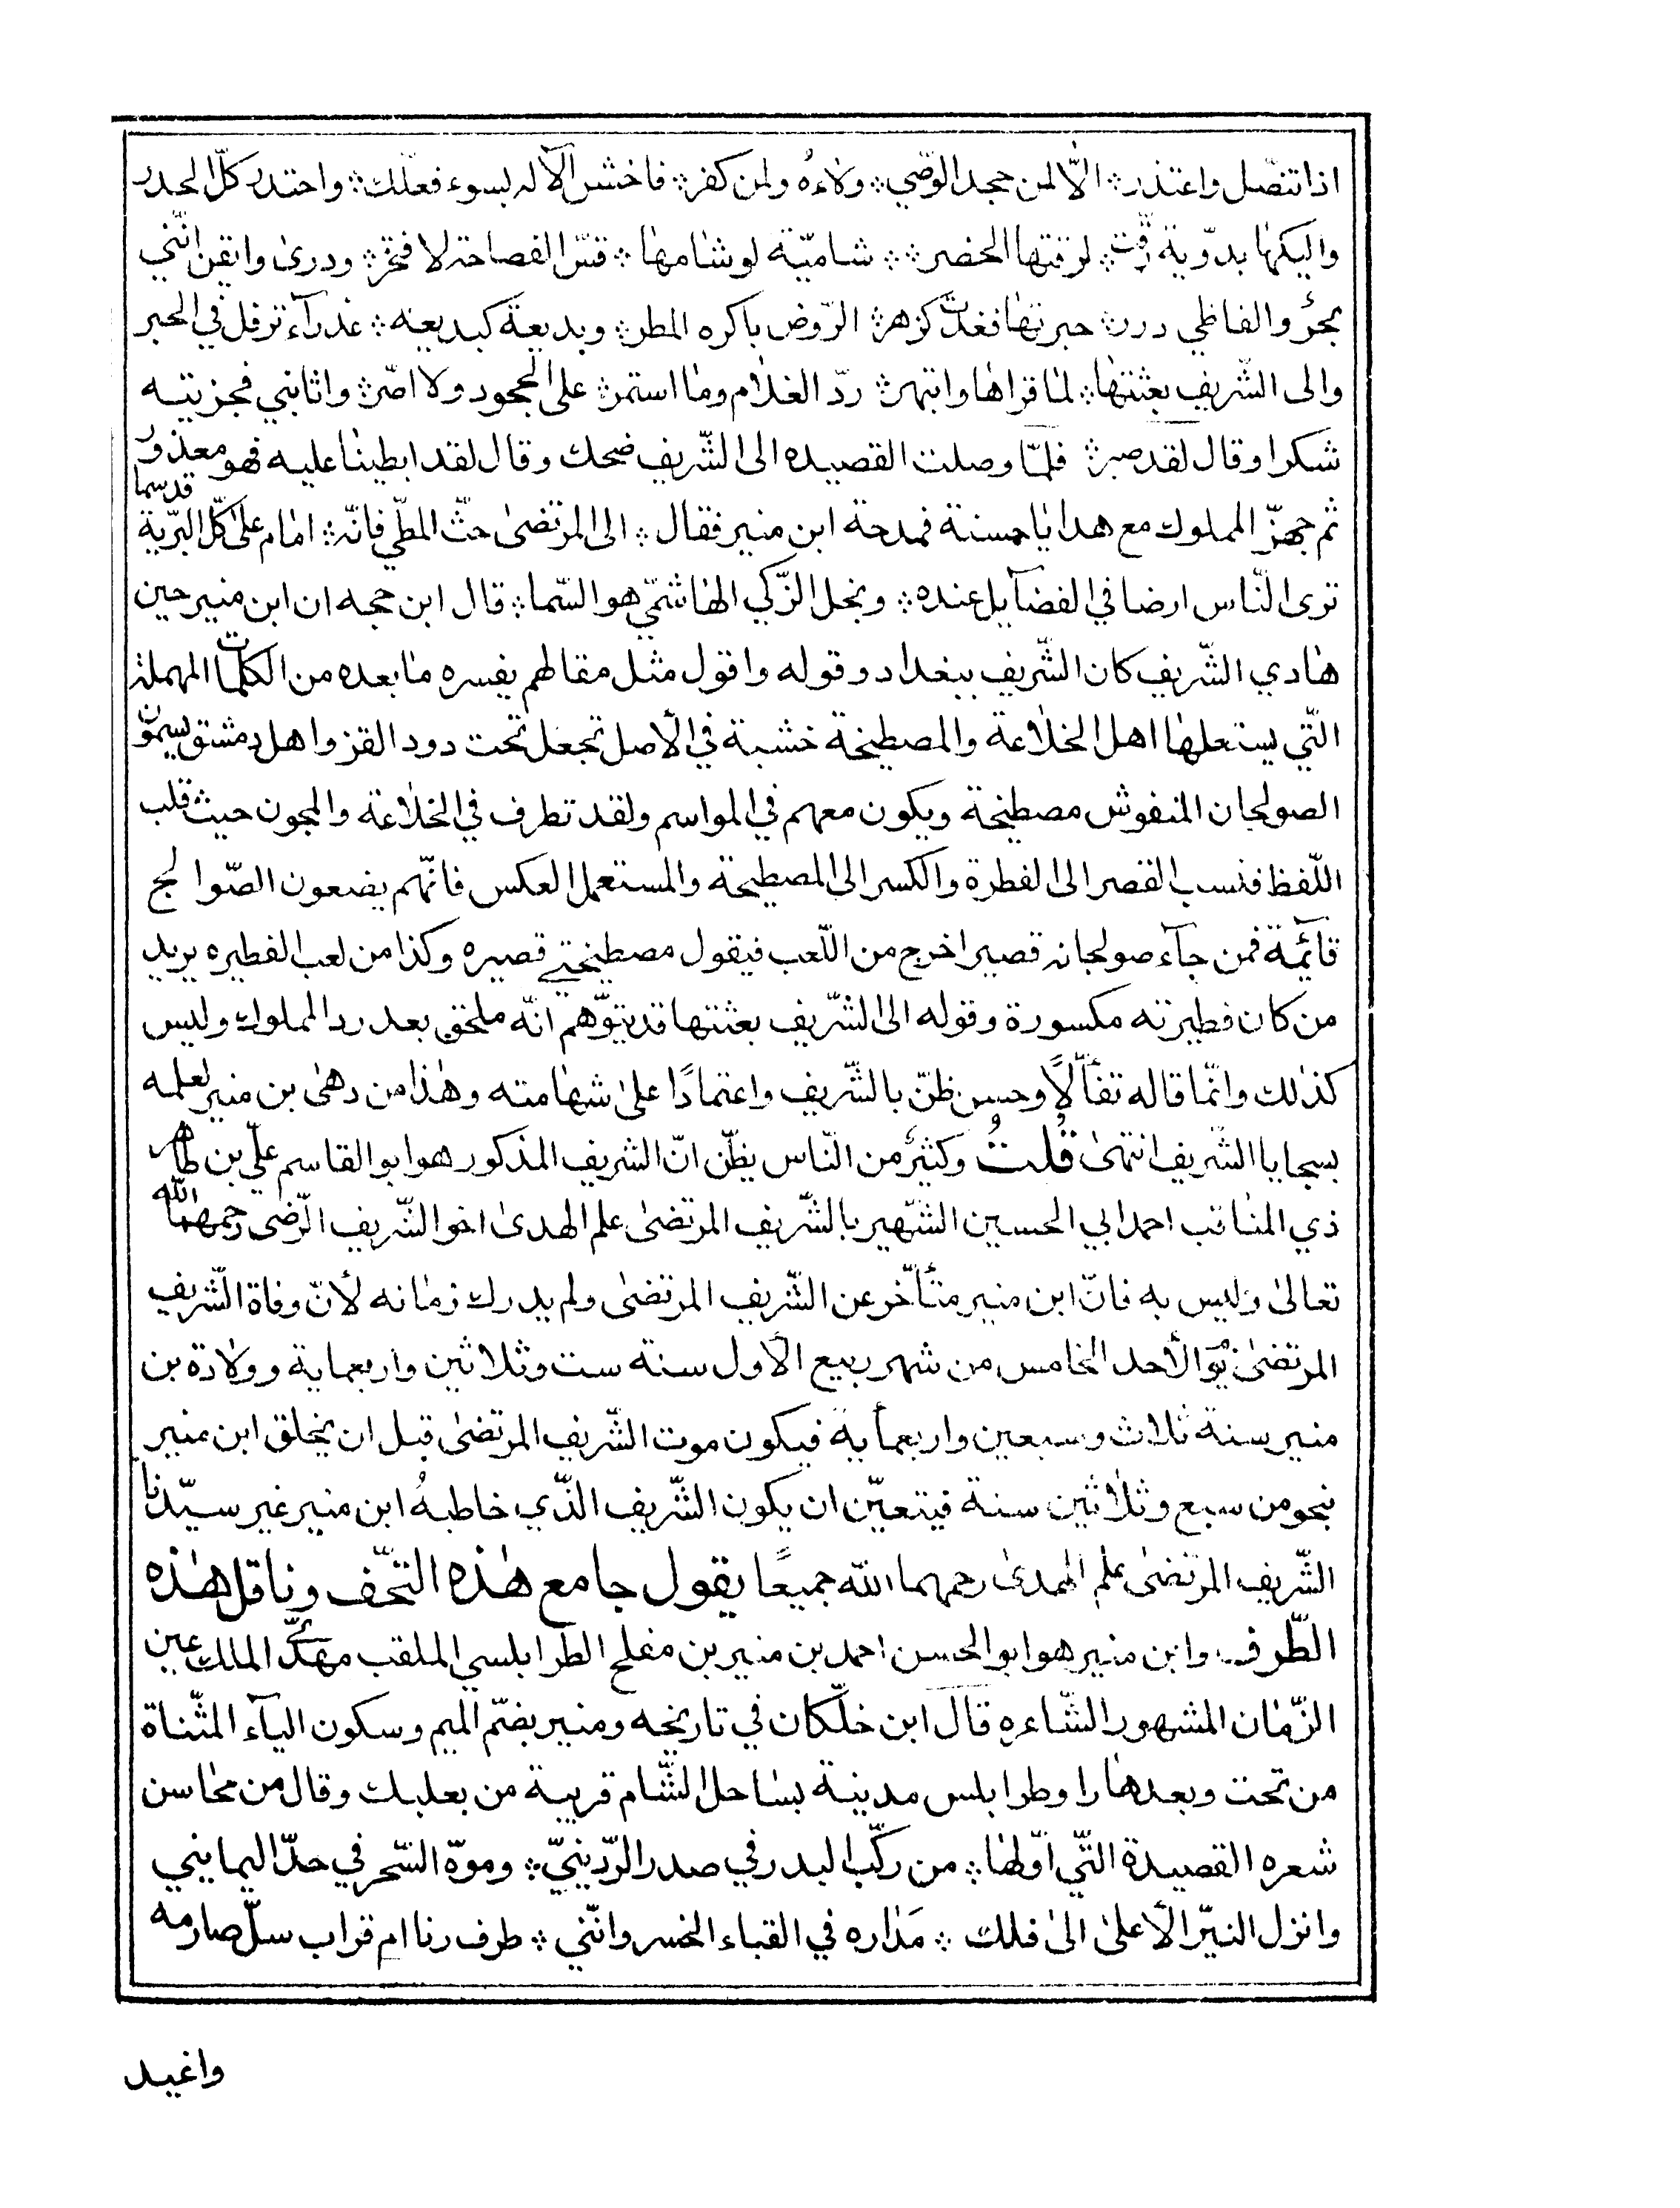 اذا تنصّل واعتذر ؞ الّا لمن جحد الوّصي ؞ ولاءهُ ولمن كفر ؞ فاخش الآله بسوء فعلّك ؞ واحتدر كلّ الحدر
واليكها بدوّية رقّت ؞ لرقتها الحضر ؞ ؞ شاميّة لو شامها ؞ قسّ الفصاحة لا فتخر ؞ ودرى وايقن انّني
بحرٌ والفاظي درر ؞ حبرتها فغدت كزهر ؞ الرّوض باكره المطر ؞ وبديعة كبديعه ؞ عذرآء ترفل في الحبر
والى الشّريف بعثتها ؞ لما قراها وانبهر ؞ ردّ الغلام وما استمر ؞ على الجحود ولا اصّر ؞ واثابني فجزيته
شكرا وقال لقد صبر ؞ فلمّا وصلت القصيده الى الشّريف ضحك وقال لقد ابطينا عليه فهو معذور
ثم جهزّ المملوك مع هدايا حسنة فمدحة ابن منير فقال ؞ الى المرتضى حثّ المطّي فانّه ؞ امام على كلّ البرّية قد سما
ترى النّاس ارضا في الفضآيل عنده ؞ ونجل الزّكي الهاشمّي هو السّما ؞ قال ابن حجه ان ابن منير حين
هادي الشّريف كان الشّريف ببغداد وقوله واقول مثل مقالهم يفسره ما بعده من الكلمات المهملة
التّي يستعلها اهل الخلاعة والمصطيخة خشبة في الأصل تجعل تحت دود القز واهل دمشق يسمون
الصولجان المنفوش مصطيخة ويكون معهم في المواسم ولقد تطرف في الخلاعة والمجون حيث قلب
اللّفظ فنسب القصر الى الفطرة والكسر الى المصطيحة والمستعمل العكس فانّهم يضعون الصّوالج
قآئمة فمن جآء صولجانه قصيرا خرج من اللّعب فيقول مصطيختي قصيره وكذا من لعب الفطيره يريد
من كان فطيرته مكسورة وقوله الى الشّريف بعثتها قد يتوّهم انّه ملحق بعد رد المملوك وليس
كذلك وانّما قاله تفألّاً وحسن ظنّ بالشّريف واعتمادًا على شهامته وهذا من دهى بن منير لعلمه
بسجايا الشّريف انتهى قُلتُ وكثيرٌ من النّاس يظّن انّ الشريف المذكور هو ابو القاسم علّي بن طاهر
ذي المناقب احمد ابي الحسين الشّهير بالشّريف المرتضى علم الهدى اخو الشّريف الرّضى رحمهما الله
تعالى وليس به فانّ ابن منير متأخّر عن الشّريف المرتضى ولم يدرك زمانه لأنّ وفاة الشّريف
المرتضى يوم الأحد الخامس من شهر ربيع الأول سنة ست وثلاثين واربعماية وولادة بن
منير سنة ثلاث وسبعين واربعمأية فيكون موت الشّريف المرتضى قبل ان يخلق ابن منير
بنحو من سبع وثلاثين سنة فيتعيّن ان يكون الشّريف الذّي خاطبهُ ابن منير غير سيّدنا
الشّريف المرتضى علم الهمدى رحمهما الله جميعًا يقول جامع هذه التحّف وناقل هذه
الطّرف وابن منير هو ابو الحسن احمد بن منير بن مفلح الطرابلسي الملقب مهذّب الملك عين
الزّمان المشهور الشّاعره قال ابن خلّكان في تاريخه ومنير بضّم الميم وسكون اليآء المثّناة
من تحت وبعدها را وطرابلس مدينة بساحل الشّام قريبة من بعلبك وقال من محاسن
شعره القصيدة التّي اوّلها ؞ من ركّب البدر في صدر الرّدينيّ ؞ وموّه السّحر في حدّ اليمايني
وانزل النيّر الأعلى الى فلك ؞ مَداره في القباء الخسروانّني ؞ طرف رنا ام قراب سلّ صارمه
واغيد